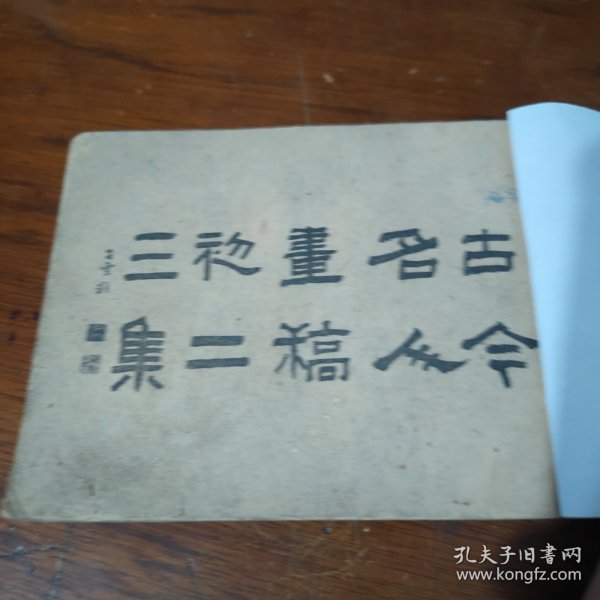 古今
名人
畫稿
初二
三集
孔夫子旧书网
www.kongfz.com